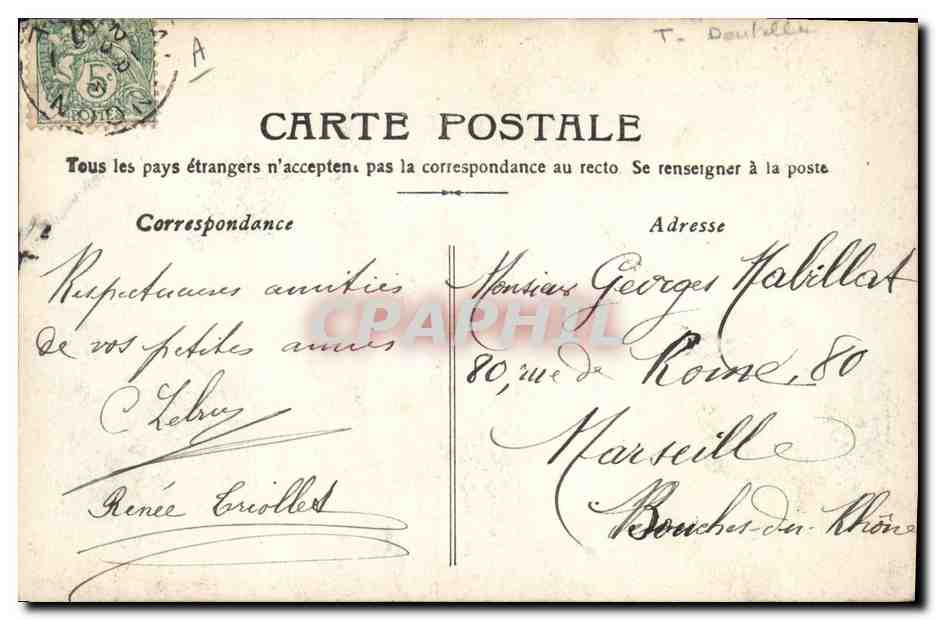 5c
POSTES
A
T.
CARTE POSTALE
Tous les pays étrangers n'acceptent pas la correspondance au recto. Se renseigner à la poste
Correspondance
Adresse
Respectueuses amitiés
de vos petites amies
Renée Triollet
Monsieur Georges Mabillat
80, rue de Rome, 80
Marseille
Bouches-du-Rhône
CPAPHIL